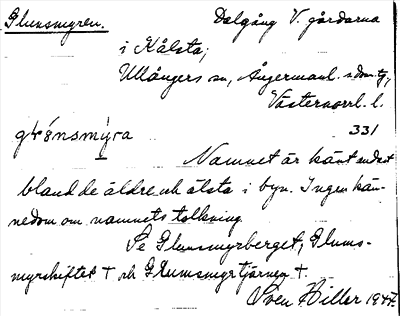 Glumsmyren. Dalgång V. gårdarna
i Kålsta,
Ullångers sn, Ångermanl. s.domtg,
Västernorrl. l.
331
Namnet är känt endast
bland de äldre och älsta i byn. Ingen kän-
nedom om namnets tolkning
Se Glumsmyrberget, Glums-
myrskiftet + och Glumsmyrtjärnen +.
Sven Hiller 1947.